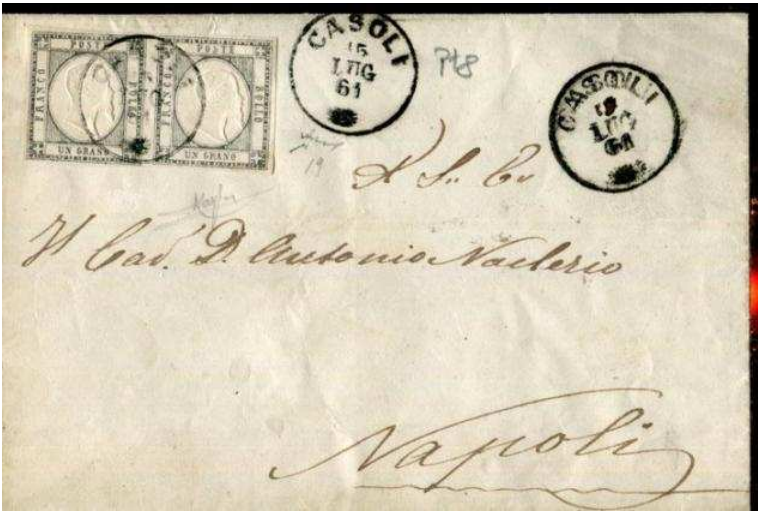 POSTE
FRANCO
BOLLO
UN GRANO
POSTE
FRANCO
BOLLO
UN GRANO
CASOLI
15
LUG
61
CASOLI
LUG
61
P48
19
Il Cav. D. Antonio Naclerio
Napoli